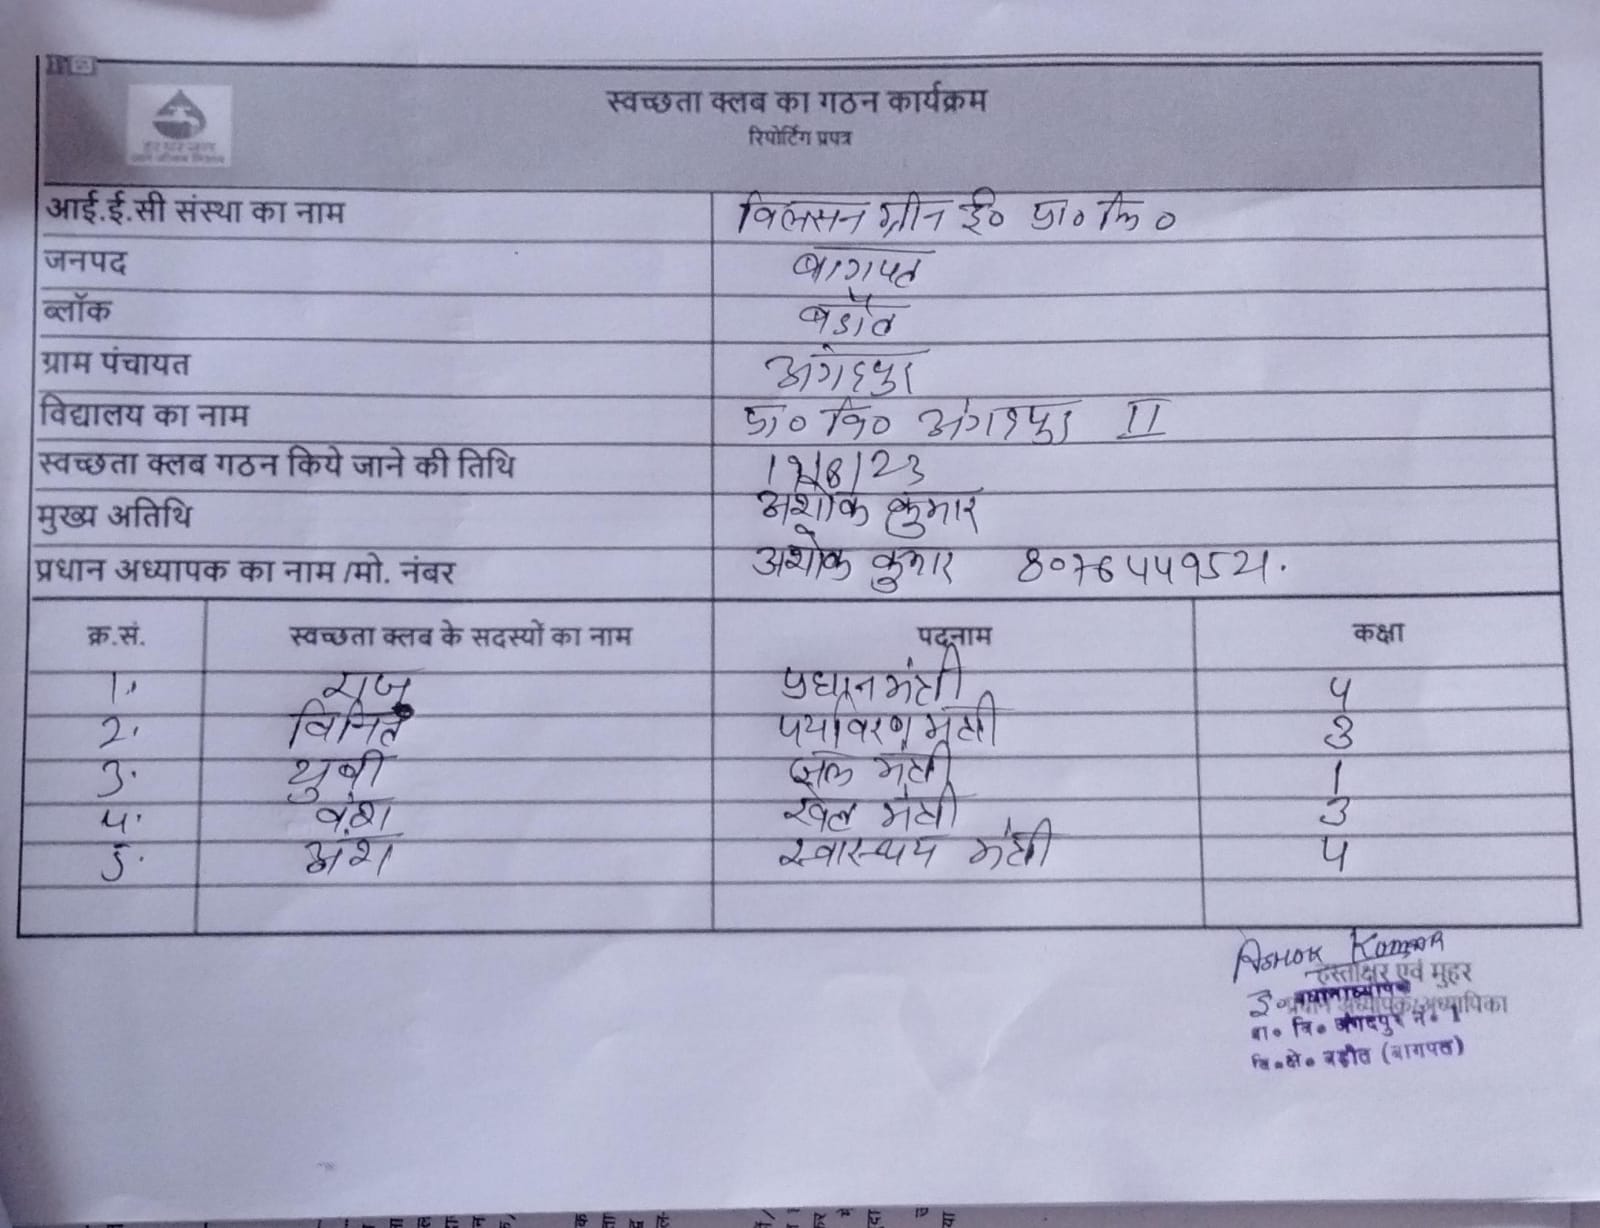 स्वच्छता क्लब का गठन कार्यक्रम
रिपोर्टिंग प्रपत्र
हर घर जल
जल जीवन मिशन
आई.ई.सी संस्था का नाम विलसन ग्रीन ई० प्रा० लि०
जनपद बागपत
ब्लॉक बडौत
ग्राम पंचायत अंगदपुर
विद्यालय का नाम प्रा० वि० अंगदपुर II
स्वच्छता क्लब गठन किये जाने की तिथि /8/23
मुख्य अतिथि अशोक कुमार
प्रधान अध्यापक का नाम /मो. नंबर अशोक कुमार 8076449521.
क्र.सं. स्वच्छता क्लब के सदस्यों का नाम पदनाम कक्षा
1. राजू प्रधानमंत्री 4
2. विनित पर्यावरण मंत्री 3
3. जल मंत्री 1
4. वंश खेल मंत्री 3
5. अंश स्वास्थय मंत्री 4
Ashok Kumar
हस्ताक्षर एवं मुहर
इ० प्रधानाध्यापक
प्रधान अध्यापक/अध्यापिका
प्रा० वि० अंगदपुर नं० 1
वि०क्षे० बड़ौत (बागपत)